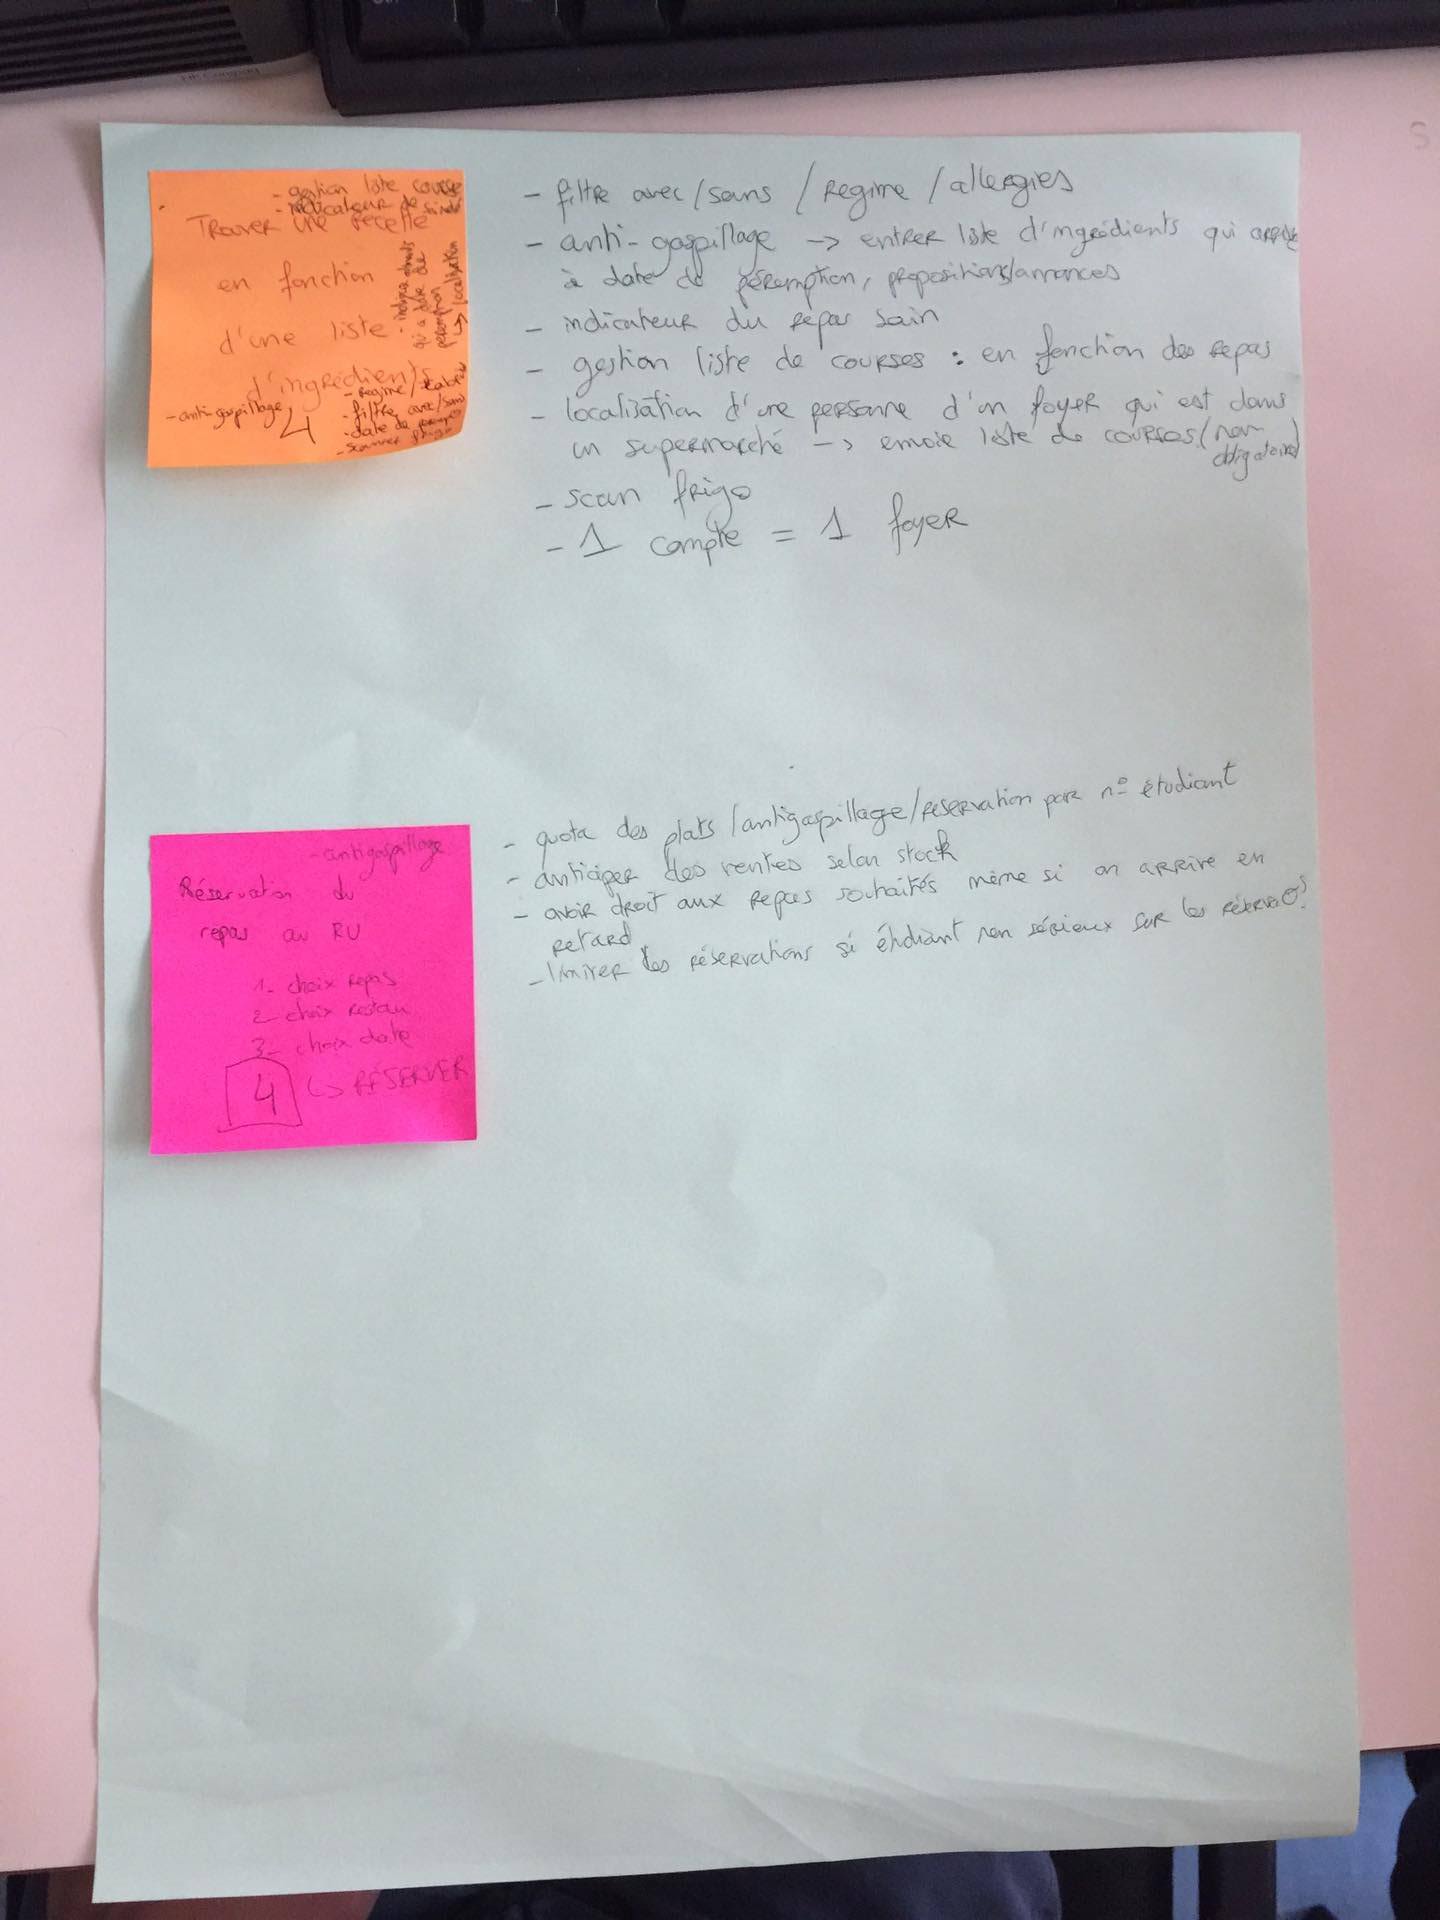 - gestion liste course
- indicateur de
Trouver une recette
en fonction
d'une liste
d'ingrédients
qui a date de
péremption
↳ localisation
- anti-gaspillage
4
- Regime
- filtre avec/sans
- date de
- scanner frigo
- filtre avec/sans / Regime / allergies
- anti-gaspillage -> entrer liste d'ingrédients qui arrive
à date de péremption, propositions/annonces
- indicateur du repas sain
- gestion liste de courses : en fonction des repas
- localisation d'une personne d'un foyer qui est dans
un supermarché -> envoie liste de courses (non
obligatoire)
- scan frigo
- 1 compte = 1 foyer
- antigaspillage
Réservation du
repas au RU
1- choix repas
2- choix restau
3- choix date
4 ↳ RÉSERVER
- quota des plats /antigaspillage/reservation par n° étudiant
- anticiper des ventes selon stock
- avoir droit aux repas souhaités même si on arrive en
retard
- limiter les réservations si étudiant non sérieux sur les réservat°